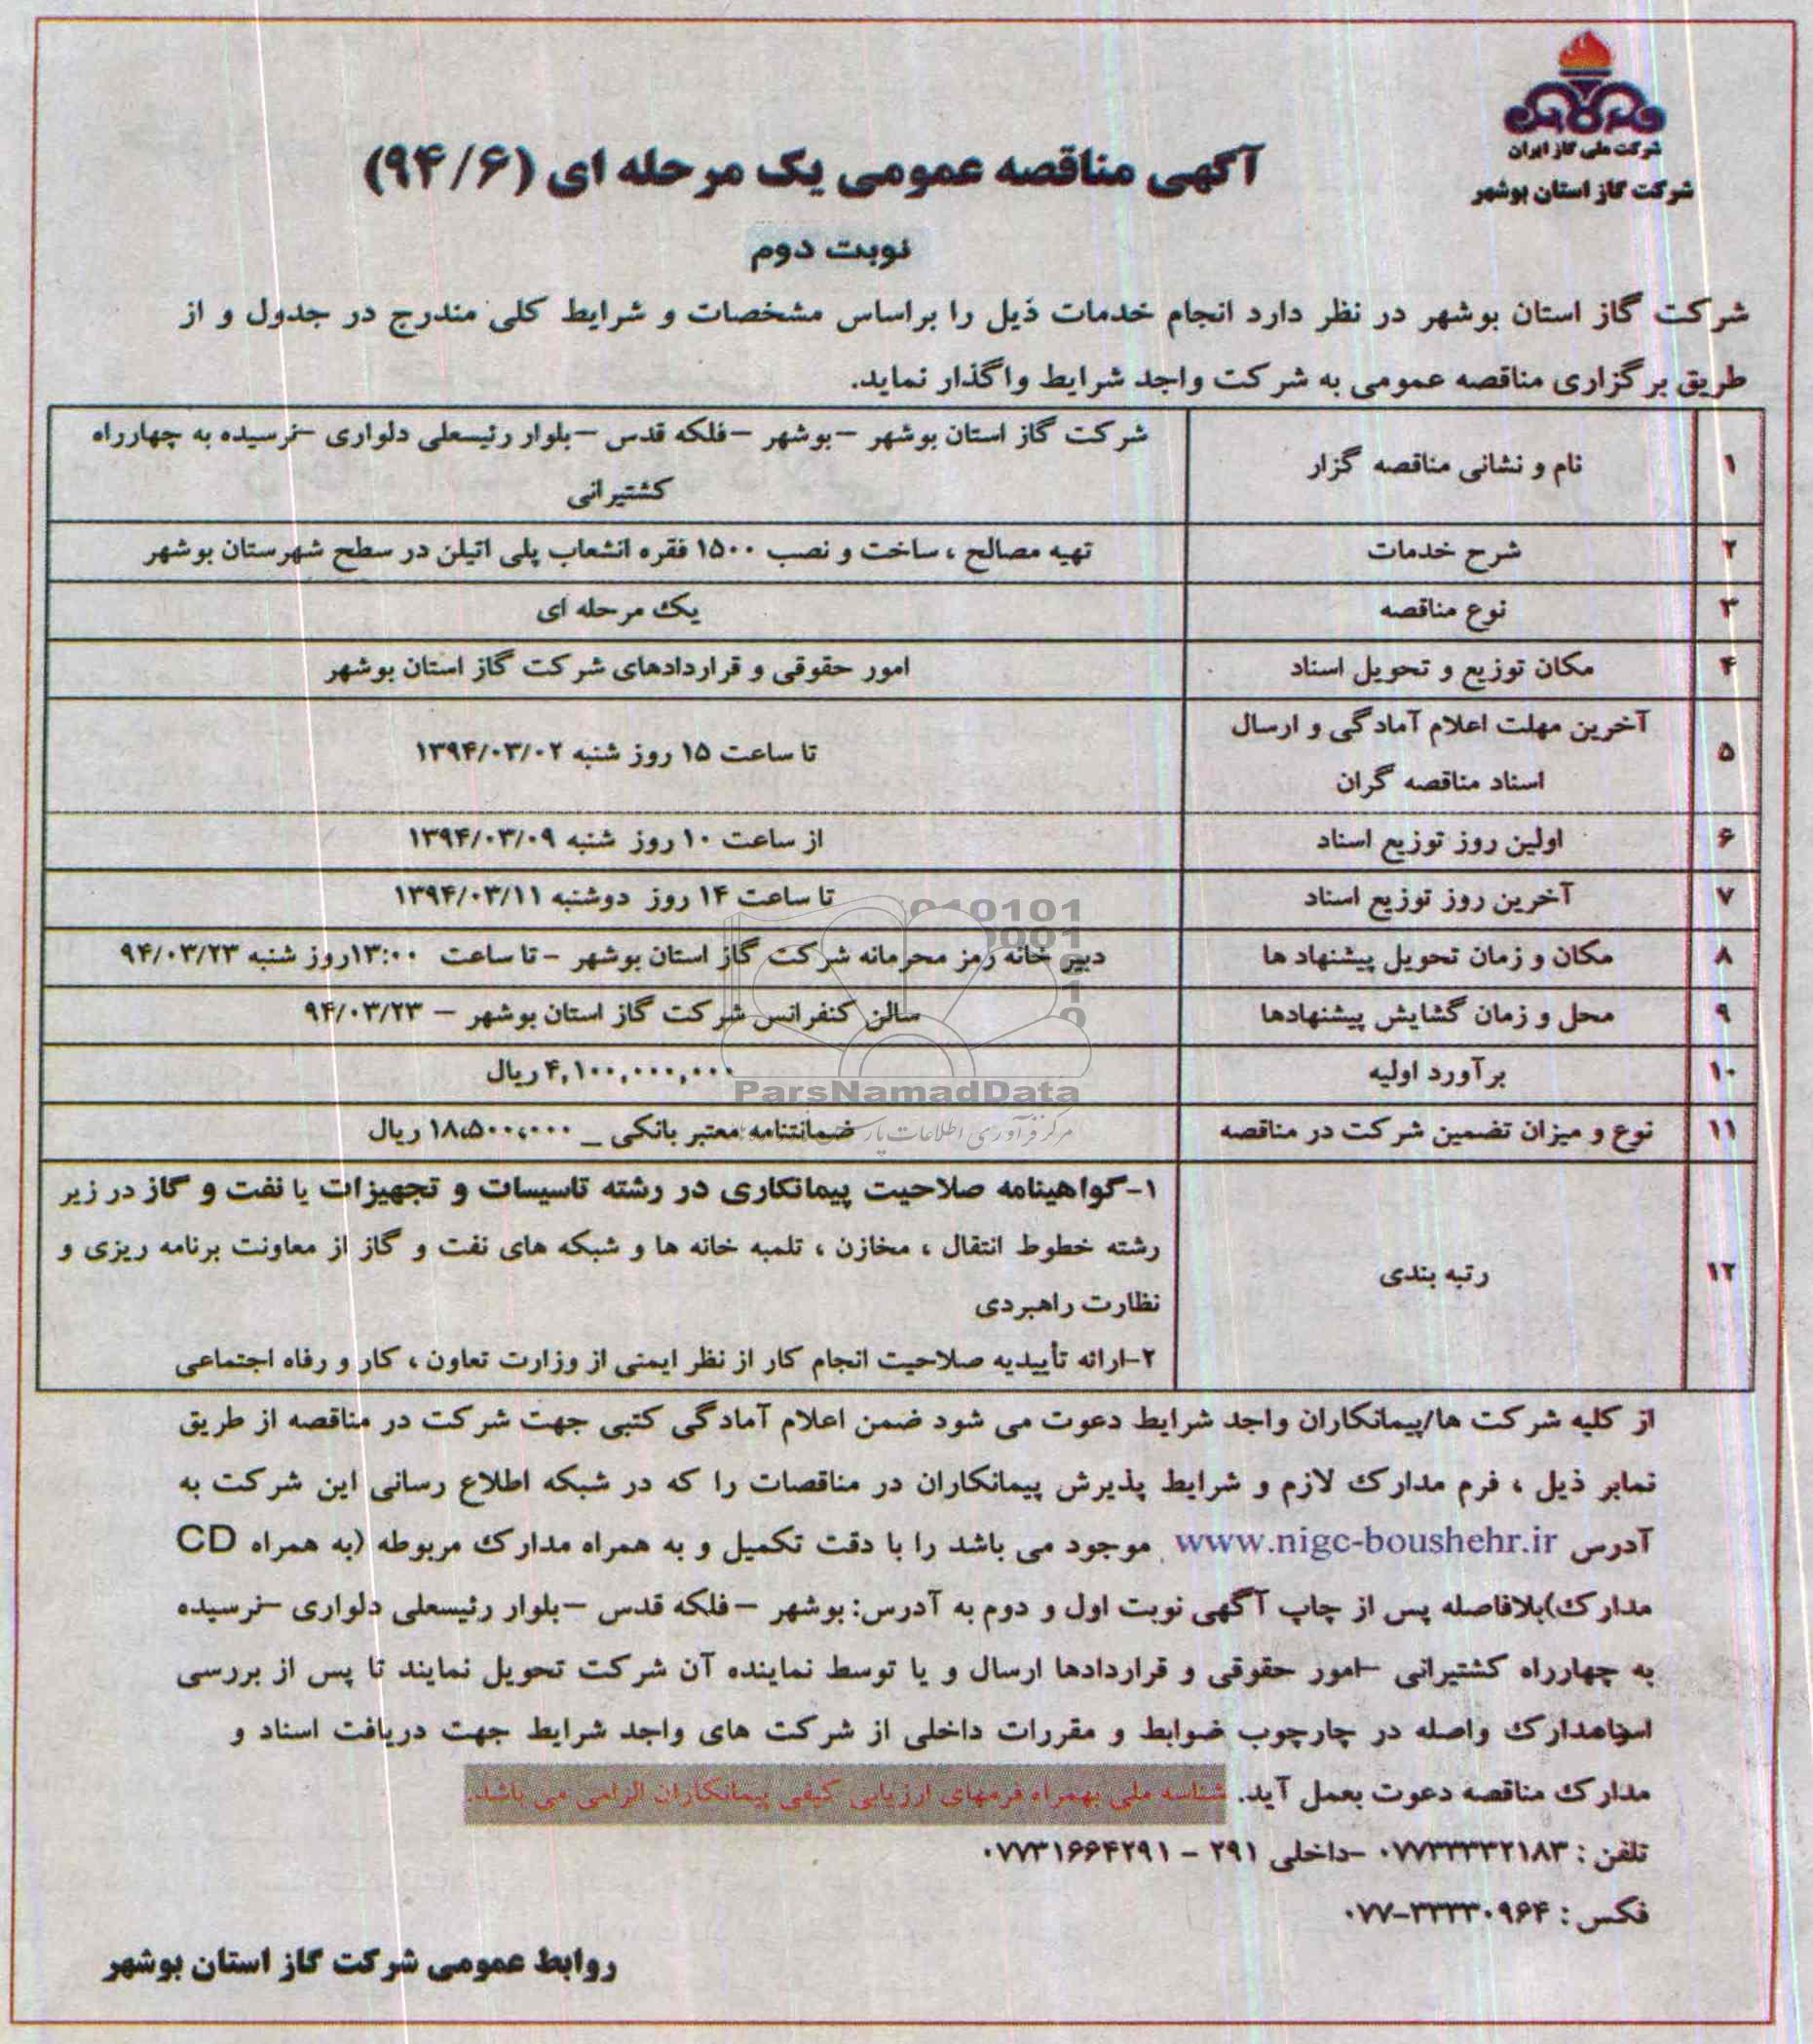 شرکت ملی گاز ایران
شرکت گاز استان بوشهر
آگهی مناقصه عمومی یک مرحله ای (۹۴/۶)
نوبت دوم
شرکت گاز استان بوشهر در نظر دارد انجام خدمات ذیل را براساس مشخصات و شرایط کلی مندرج در جدول و از
طریق برگزاری مناقصه عمومی به شرکت واجد شرایط واگذار نماید.
۱ نام و نشانی مناقصه گزار شرکت گاز استان بوشهر –بوشهر –فلکه قدس –بلوار رئیسعلی دلواری –نرسیده به چهارراه
کشتیرانی
۲ شرح خدمات تهیه مصالح ، ساخت و نصب ۱۵۰۰ فقره انشعاب پلی اتیلن در سطح شهرستان بوشهر
۳ نوع مناقصه یک مرحله ای
۴ مکان توزیع و تحویل اسناد امور حقوقی و قراردادهای شرکت گاز استان بوشهر
۵ آخرین مهلت اعلام آمادگی و ارسال
اسناد مناقصه گران تا ساعت ۱۵ روز شنبه ۱۳۹۴/۰۳/۰۲
۶ اولین روز توزیع اسناد از ساعت ۱۰ روز شنبه ۱۳۹۴/۰۳/۰۹
۷ آخرین روز توزیع اسناد تا ساعت ۱۴ روز دوشنبه ۱۳۹۴/۰۳/۱۱
۸ مکان و زمان تحویل پیشنهاد ها دبیر خانه رمز محرمانه شرکت گاز استان بوشهر – تا ساعت ۱۳:۰۰روز شنبه ۹۴/۰۳/۲۳
۹ محل و زمان گشایش پیشنهادها سالن کنفرانس شرکت گاز استان بوشهر – ۹۴/۰۳/۲۳
۱۰ برآورد اولیه ۴,۱۰۰,۰۰۰,۰۰۰ ریال
۱۱ نوع و میزان تضمین شرکت در مناقصه ضمانتنامه معتبر بانکی _ ۱۸،۵۰۰،۰۰۰ ریال
۱۲ رتبه بندی ۱-گواهینامه صلاحیت پیمانکاری در رشته تاسیسات و تجهیزات یا نفت و گاز در زیر
رشته خطوط انتقال ، مخازن ، تلمبه خانه ها و شبکه های نفت و گاز از معاونت برنامه ریزی و
نظارت راهبردی
۲-ارائه تأییدیه صلاحیت انجام کار از نظر ایمنی از وزارت تعاون ، کار و رفاه اجتماعی
از کلیه شرکت ها/پیمانکاران واجد شرایط دعوت می شود ضمن اعلام آمادگی کتبی جهت شرکت در مناقصه از طریق
نمابر ذیل ، فرم مدارک لازم و شرایط پذیرش پیمانکاران در مناقصات را که در شبکه اطلاع رسانی این شرکت به
آدرس www.nigc-boushehr.ir موجود می باشد را با دقت تکمیل و به همراه مدارک مربوطه (به همراه CD
مدارک)بلافاصله پس از چاپ آگهی نوبت اول و دوم به آدرس: بوشهر –فلکه قدس –بلوار رئیسعلی دلواری –نرسیده
به چهارراه کشتیرانی –امور حقوقی و قراردادها ارسال و یا توسط نماینده آن شرکت تحویل نمایند تا پس از بررسی
واصله در چارچوب ضوابط و مقررات داخلی از شرکت های واجد شرایط جهت دریافت اسناد و
مدارک مناقصه دعوت بعمل آید. شناسه ملی بهمراه فرمهای ارزیابی کیفی پیمانکاران الزامی می باشد.
تلفن : ۰۷۷۳۳۳۳۲۱۸۳ -داخلی ۲۹۱ – ۰۷۷۳۱۶۶۴۲۹۱
فکس : ۰۷۷-۳۳۳۳۰۹۶۴
روابط عمومی شرکت گاز استان بوشهر
ParsNamadData